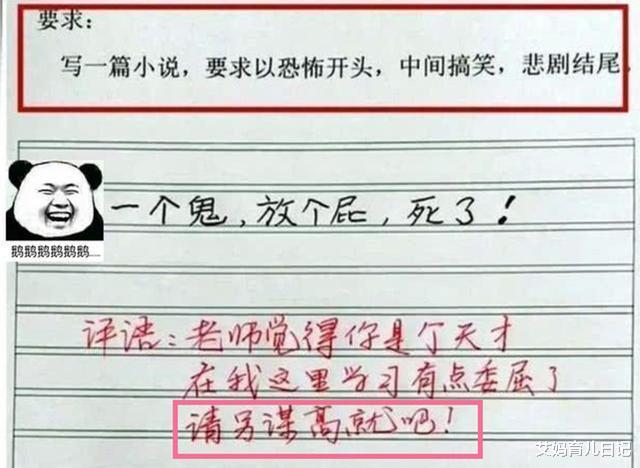 要求:
写一篇小说，要求以恐怖开头，中间搞笑，悲剧结尾。
一个鬼，放个屁，死了！
鹅鹅鹅鹅鹅鹅....
评语：老师觉得你是个天才
在我这里学习有点委屈了
请另谋高就吧！
艾妈育儿日记